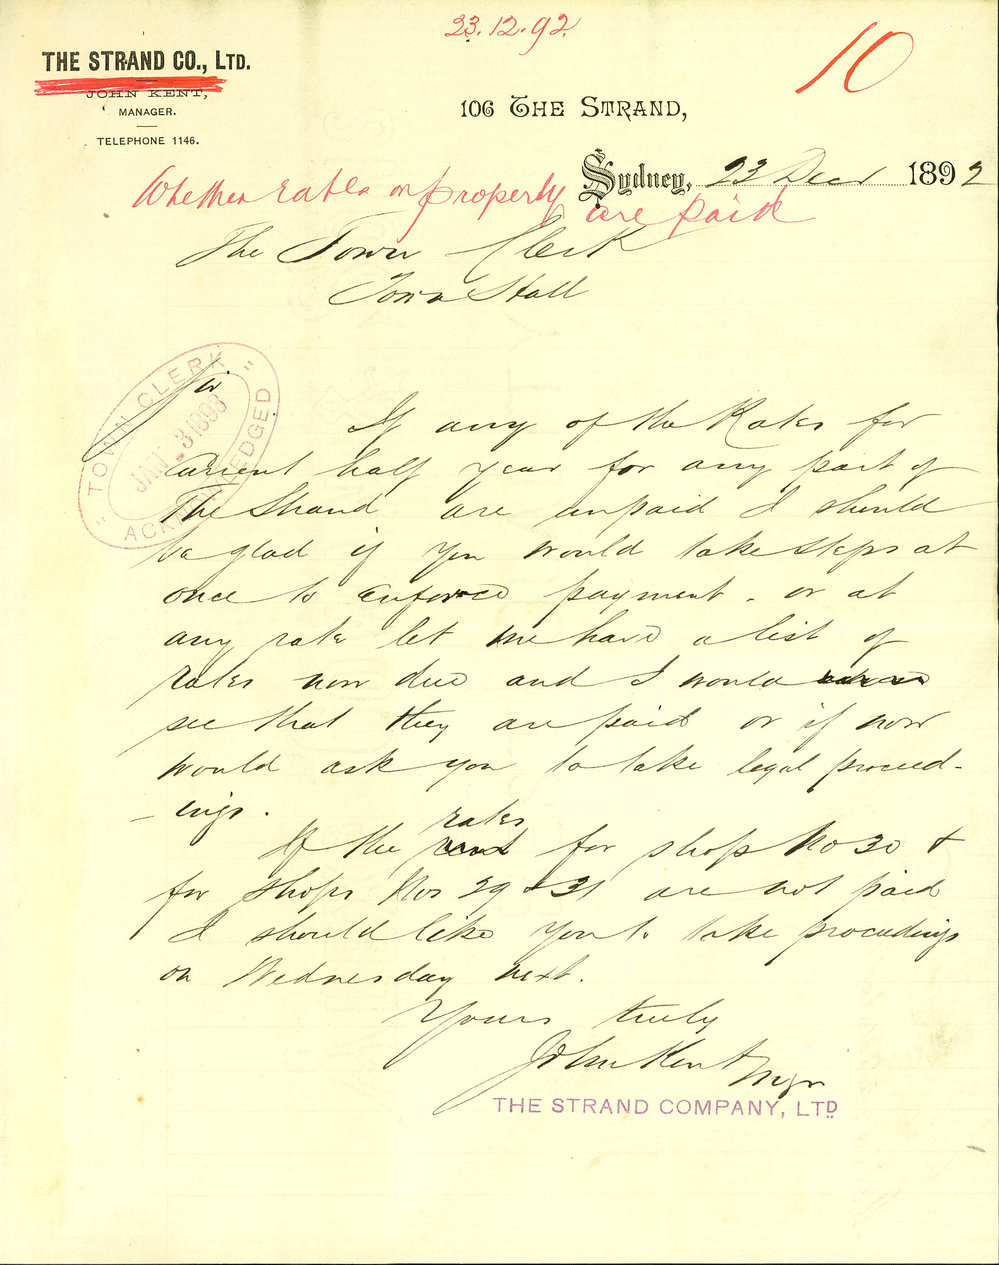 23.12.92
10
THE STRAND CO., LTD.
JOHN KENT,
MANAGER.
TELEPHONE 1146.
106 THE STRAND,
Sydney, 23 Decr 1892
Whether rates on property are paid
The Town Clerk
Town Hall
TOWN CLERK
JAN 3 1893
ACKNOWLEDGED
Sir
If any of the Rates for
current half year for any part of
The Strand are unpaid I should
be glad if you would take steps at
once to enforce payment. or at
any rate let me have a list of
rates now due and I would
see that they are paid or if now
would ask you to take legal proceed-
-ings.
If the rates for shop No 30 &
for shops Nos 29 & 31 are not paid
I should like you to take proceedings
on Wednesday next.
Yours truly
John Kent Mgr
THE STRAND COMPANY, LTD